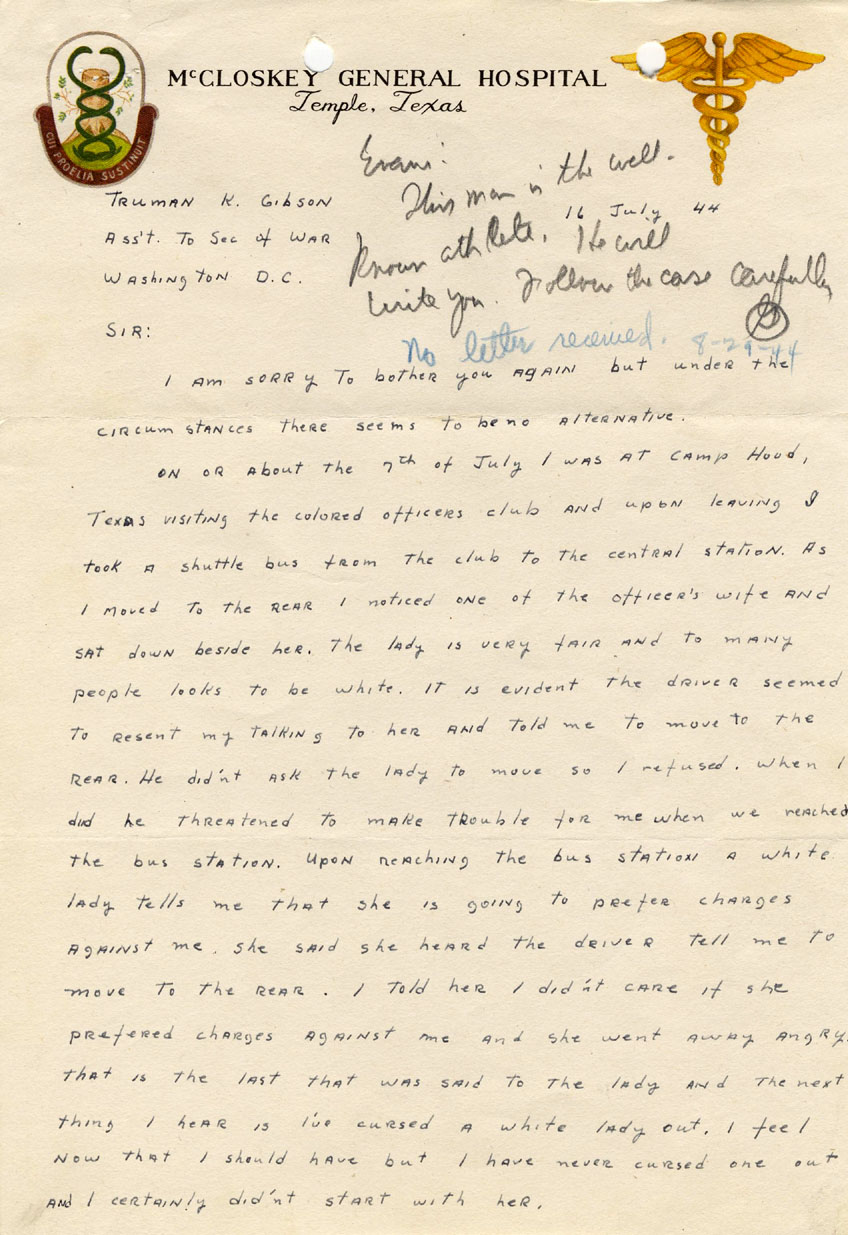 McCLOSKEY GENERAL HOSPITAL
Temple, Texas
CUI PROELIA SUSTINUIT
Evans:
This man is the well-
known athlete. He will
write you. Follow the case carefully
G
TRUMAN K. GIBSON
16 July 44
Ass't. To Sec of WAR
Washington D.C.
SIR:
No letter received. 8-29-44
I AM SORRY To bother you AGAIN but under the
circumstances there seems to be no alternative.
ON OR About the 7th of July I was AT CAMP Hood,
Texas visiting the colored officers club AND upon leaving I
took A shuttle bus from The club to The central station. As
I moved To the REAR I noticed ONE of the officer's wife AND
SAT down beside her. The lady is very fair AND to many
people looks to be white. IT is evident the driver seemed
To resent my TAlKINg to her AND Told me To move to the
REAR. He didn't ASK the lady to move so I refused. When I
did he threatened to make trouble for me when we reached
the bus station. Upon reaching the bus station a white
lady tells me that she is going to prefer charges
AgAINST me. She said she heard the driver tell me to
move To the REAR. I Told her I didn't CARE if she
prefered charges AgAINST me and she went away ANgRY.
That is the last that was said to the lady AND The next
thing I hear is I've cursed A white lady out. I feel
Now that I should have but I have never cursed one out
AND I certainly didn't start with her.